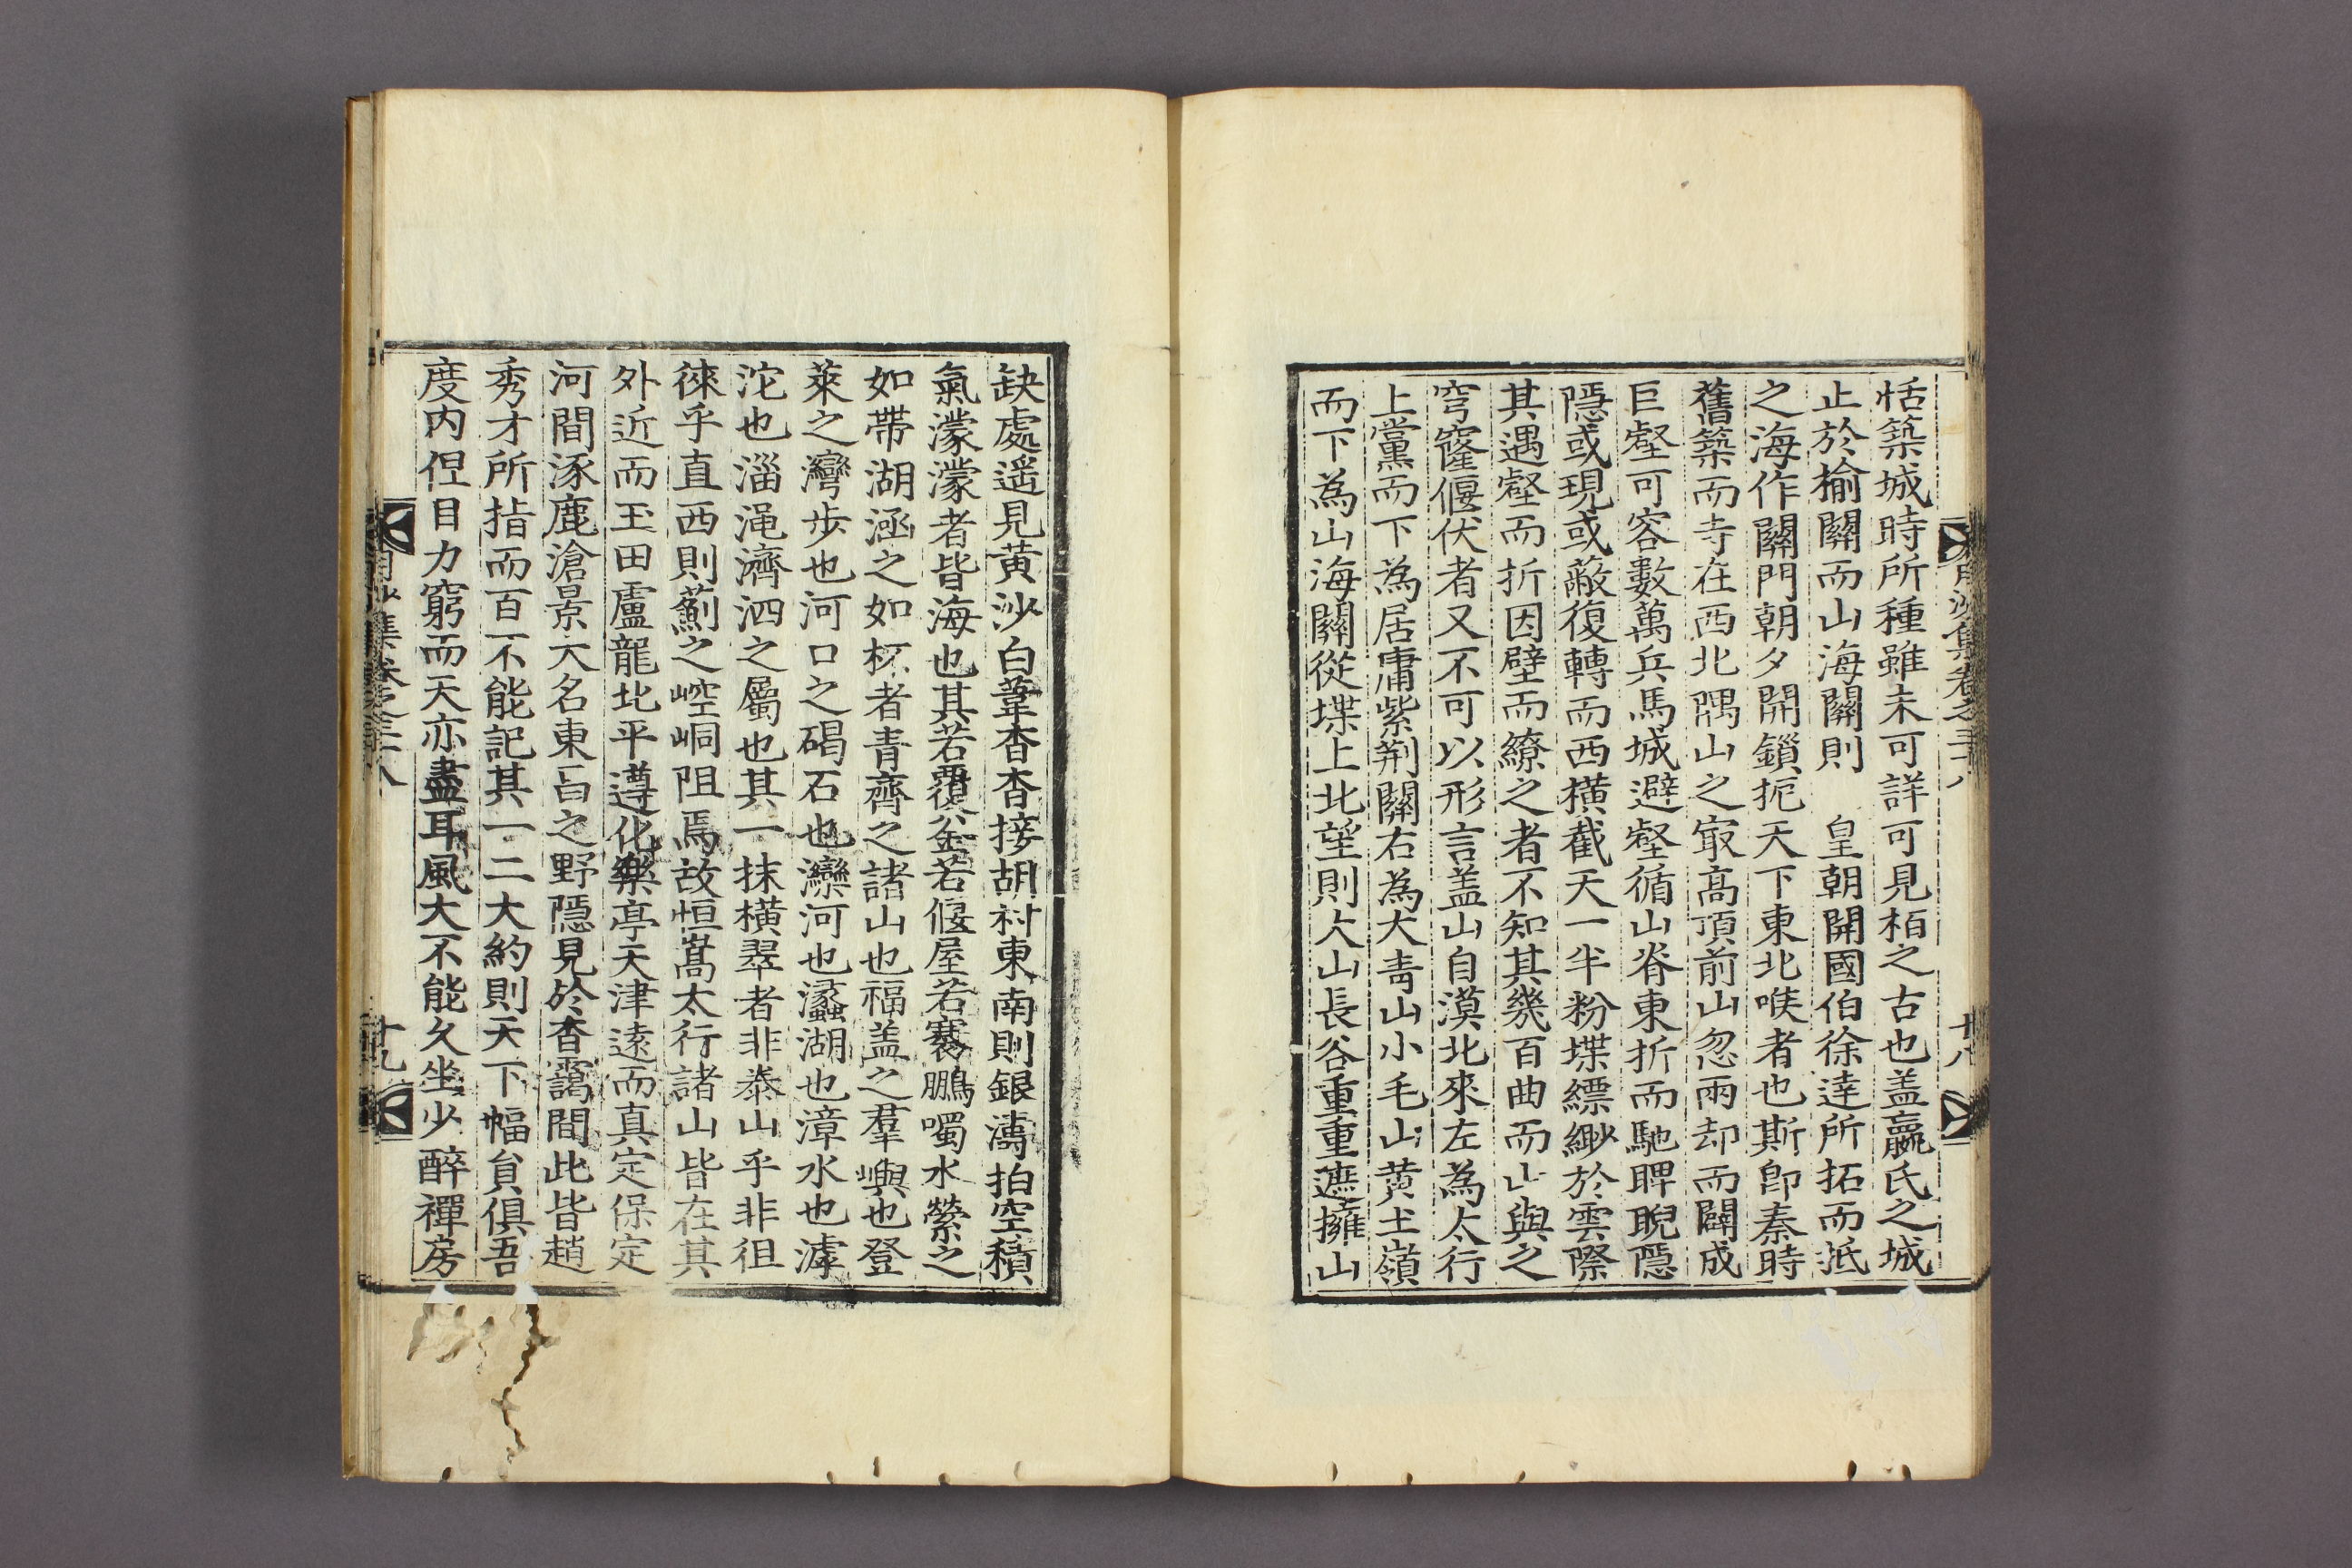 月沙集卷之三十八　十八
恬築城時所種雖未可詳可見栢之古也盖嬴氏之城
止於楡關而山海關則　皇朝開國伯徐逹所拓而抵
之海作關門朝夕開鎖扼天下東北喉者也斯卽秦時
舊築而寺在西北隅山之㝡高頂前山忽兩却而闢成
巨壑可容數萬兵馬城避壑循山脊東折而馳睥睨隱
隱或現或蔽復轉而西橫截天一半粉堞縹緲於雲際
其遇壑而折因壁而繚之者不知其幾百曲而山與之
穹窿偃伏者又不可以形言盖山自漠北來左為太行
上黨而下為居庸紫荆關右為大青山小毛山黄土嶺
而下為山海關從堞上北望則大山長谷重重遮擁山
缺處遥見黄沙白葦杳杳接胡村東南則銀濤拍空積
氣濛濛者皆海也其若覆釡若偃屋若騫鵬噣水縈之
如帶湖涵之如杯者青齊之諸山也福盖之羣嶼也登
萊之灣步也河口之碣石也灤河也瀛湖也漳水也滹
沱也淄澠濟泗之屬也其一抹橫翠者非泰山乎非徂
徠乎直西則薊之崆峒阻焉故恒嵩太行諸山皆在其
外近而玉田盧龍北平遵化樂亭天津遠而真定保定
河間涿鹿滄景大名東昌之野隱見於杳靄間此皆趙
秀才所指而百不能記其一二大約則天下幅貟俱吾
度内但目力窮而天亦盡耳風大不能久坐少醉禪房
月沙集卷之三十八　十九